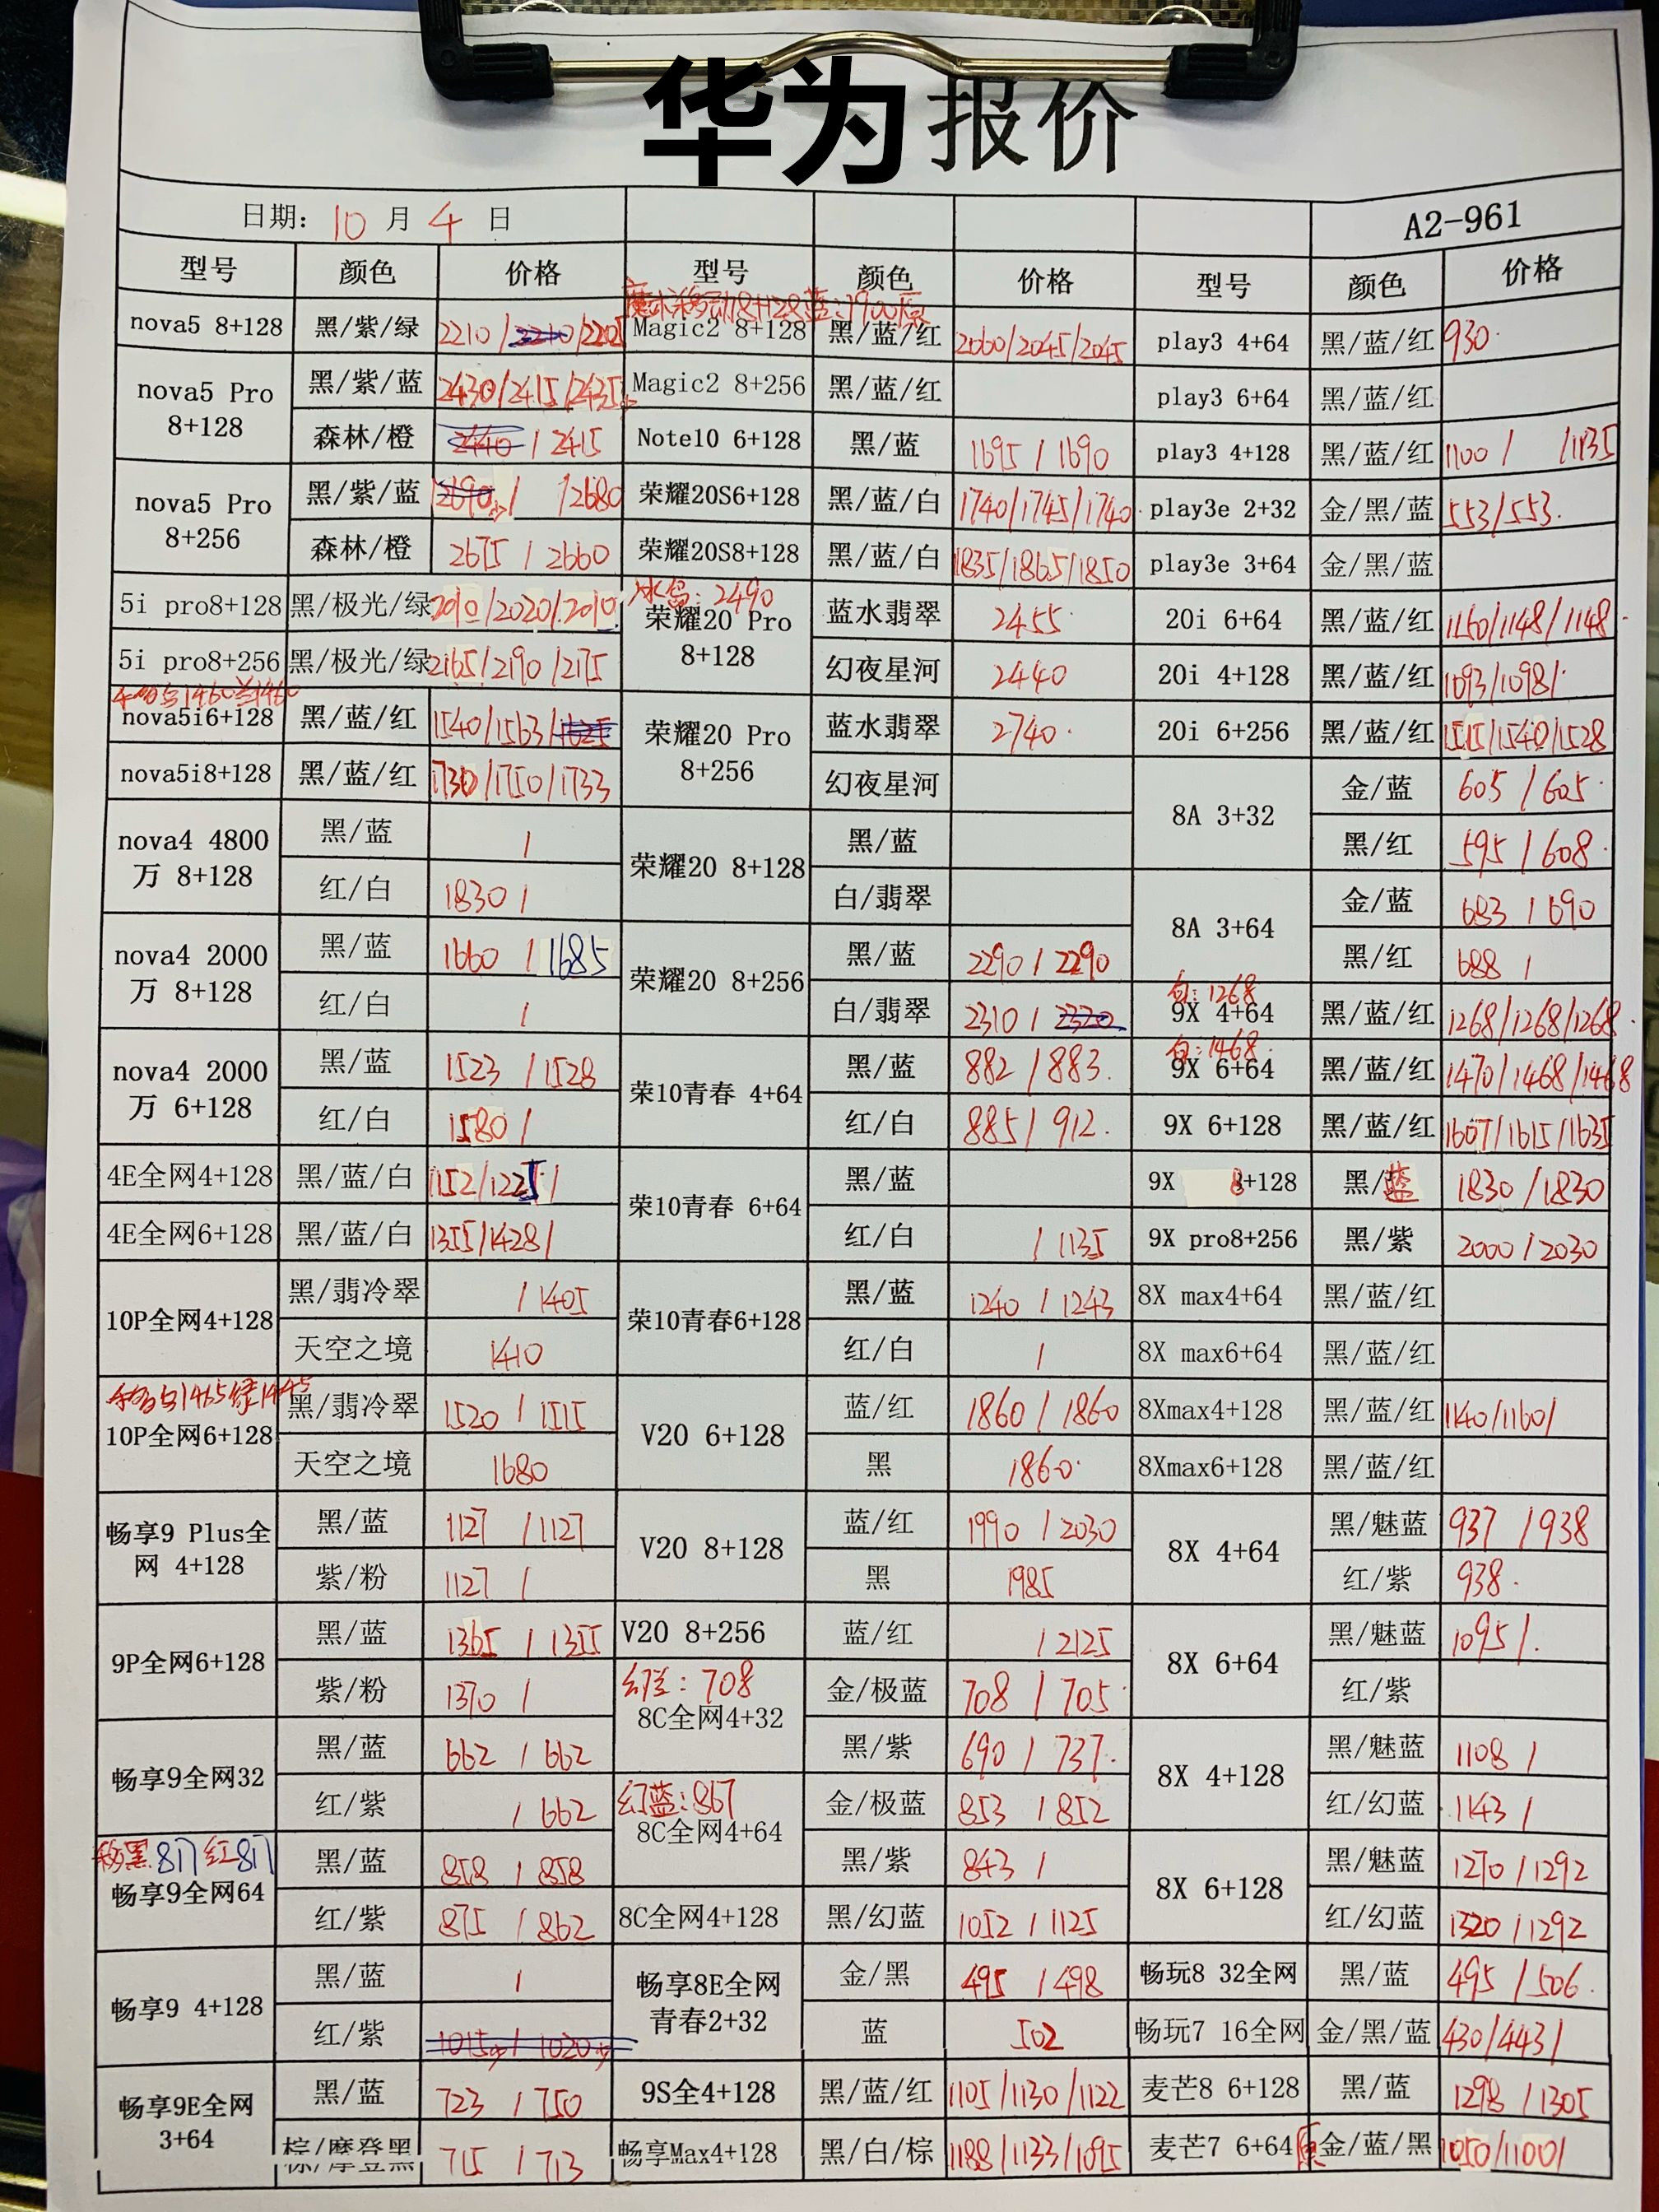 华为报价
日期: 10 月 4 日 A2-961
型号 颜色 价格 型号 颜色 价格 型号 颜色 价格
nova5 8+128 黑/紫/绿 2210/ /2205 Magic2 8+128 黑/蓝/红 2060/2045/2045 play3 4+64 黑/蓝/红 930
nova5 Pro 8+128 黑/紫/蓝 2430/2415/2435 Magic2 8+256 黑/蓝/红 play3 6+64 黑/蓝/红
森林/橙 2440 / 2415 Note10 6+128 黑/蓝 1695 / 1690 play3 4+128 黑/蓝/红 1100 / /1135
nova5 Pro 8+256 黑/紫/蓝 2690 / /2680 荣耀20S6+128 黑/蓝/白 1740/1745/1740 play3e 2+32 金/黑/蓝 553/553
森林/橙 2675 / 2660 荣耀20S8+128 黑/蓝/白 1835/1865/1850 play3e 3+64 金/黑/蓝
5i pro8+128 黑/极光/绿 2010/2020/2010 冰岛: 2490 荣耀20 Pro 8+128 蓝水翡翠 2455 20i 6+64 黑/蓝/红 1150/1148/1148
5i pro8+256 黑/极光/绿 2165/2190/2175 幻夜星河 2440 20i 4+128 黑/蓝/红 1093/1098/
nova5i6+128 黑/蓝/红 1540/1563/1625 荣耀20 Pro 8+256 蓝水翡翠 2740 20i 6+256 黑/蓝/红 1515/1540/1528
nova5i8+128 黑/蓝/红 1730/1750/1733 幻夜星河 8A 3+32 金/蓝 605 / 605
nova4 4800万 8+128 黑/蓝 / 荣耀20 8+128 黑/蓝 黑/红 595 / 608
红/白 1830 / 白/翡翠 8A 3+64 金/蓝 683 / 690
nova4 2000万 8+128 黑/蓝 1660 / 1685 荣耀20 8+256 黑/蓝 2290 / 2290 黑/红 688 /
红/白 / 白/翡翠 2310 / 2320 白: 1268 9X 4+64 黑/蓝/红 1268/1268/1268
nova4 2000万 6+128 黑/蓝 1523 / 1528 荣10青春 4+64 黑/蓝 882 / 883 白: 1468 9X 6+64 黑/蓝/红 1470/1468/1468
红/白 1580 / 红/白 885 / 912 9X 6+128 黑/蓝/红 1607/1615/1635
4E全网4+128 黑/蓝/白 1152/1225/ 荣10青春 6+64 黑/蓝 9X 8+128 黑/蓝 1830 / 1830
4E全网6+128 黑/蓝/白 1355/1428/ 红/白 / 1135 9X pro8+256 黑/紫 2000 / 2030
10P全网4+128 黑/翡冷翠 / 1405 荣10青春6+128 黑/蓝 1240 / 1243 8X max4+64 黑/蓝/红
天空之境 1410 红/白 / 8X max6+64 黑/蓝/红
10P全网6+128 黑/翡冷翠 1520 / 1515 V20 6+128 蓝/红 1860 / 1860 8Xmax4+128 黑/蓝/红 1140/1160/
天空之境 1680 黑 1860 8Xmax6+128 黑/蓝/红
畅享9 Plus全网 4+128 黑/蓝 1127 / 1127 V20 8+128 蓝/红 1990 / 2030 8X 4+64 黑/魅蓝 937 / 938
紫/粉 1127 / 黑 1985 红/紫 938
9P全网6+128 黑/蓝 1365 / 1355 V20 8+256 蓝/红 / 2125 8X 6+64 黑/魅蓝 1095 /
紫/粉 1370 / 708 8C全网4+32 金/极蓝 708 / 705 红/紫
畅享9全网32 黑/蓝 662 / 662 黑/紫 690 / 737 8X 4+128 黑/魅蓝 1108 /
红/紫 / 662 幻蓝: 867 8C全网4+64 金/极蓝 853 / 852 红/幻蓝 1143 /
黑 817 红 817 畅享9全网64 黑/蓝 858 / 858 黑/紫 843 / 8X 6+128 黑/魅蓝 1270 / 1292
红/紫 875 / 862 8C全网4+128 黑/幻蓝 1052 / 1125 红/幻蓝 1320 / 1292
畅享9 4+128 黑/蓝 / 畅享8E全网青春2+32 金/黑 495 / 498 畅玩8 32全网 黑/蓝 495 / 506
红/紫 1015 / 1020 蓝 502 畅玩7 16全网 金/黑/蓝 430/443/
畅享9E全网 3+64 黑/蓝 723 / 750 9S全4+128 黑/蓝/红 1105/1130/1122 麦芒8 6+128 黑/蓝 1298 / 1305
棕/摩登黑 715 / 713 畅享Max4+128 黑/白/棕 1188/1133/1095 麦芒7 6+64 原 金/蓝/黑 1050/1100/